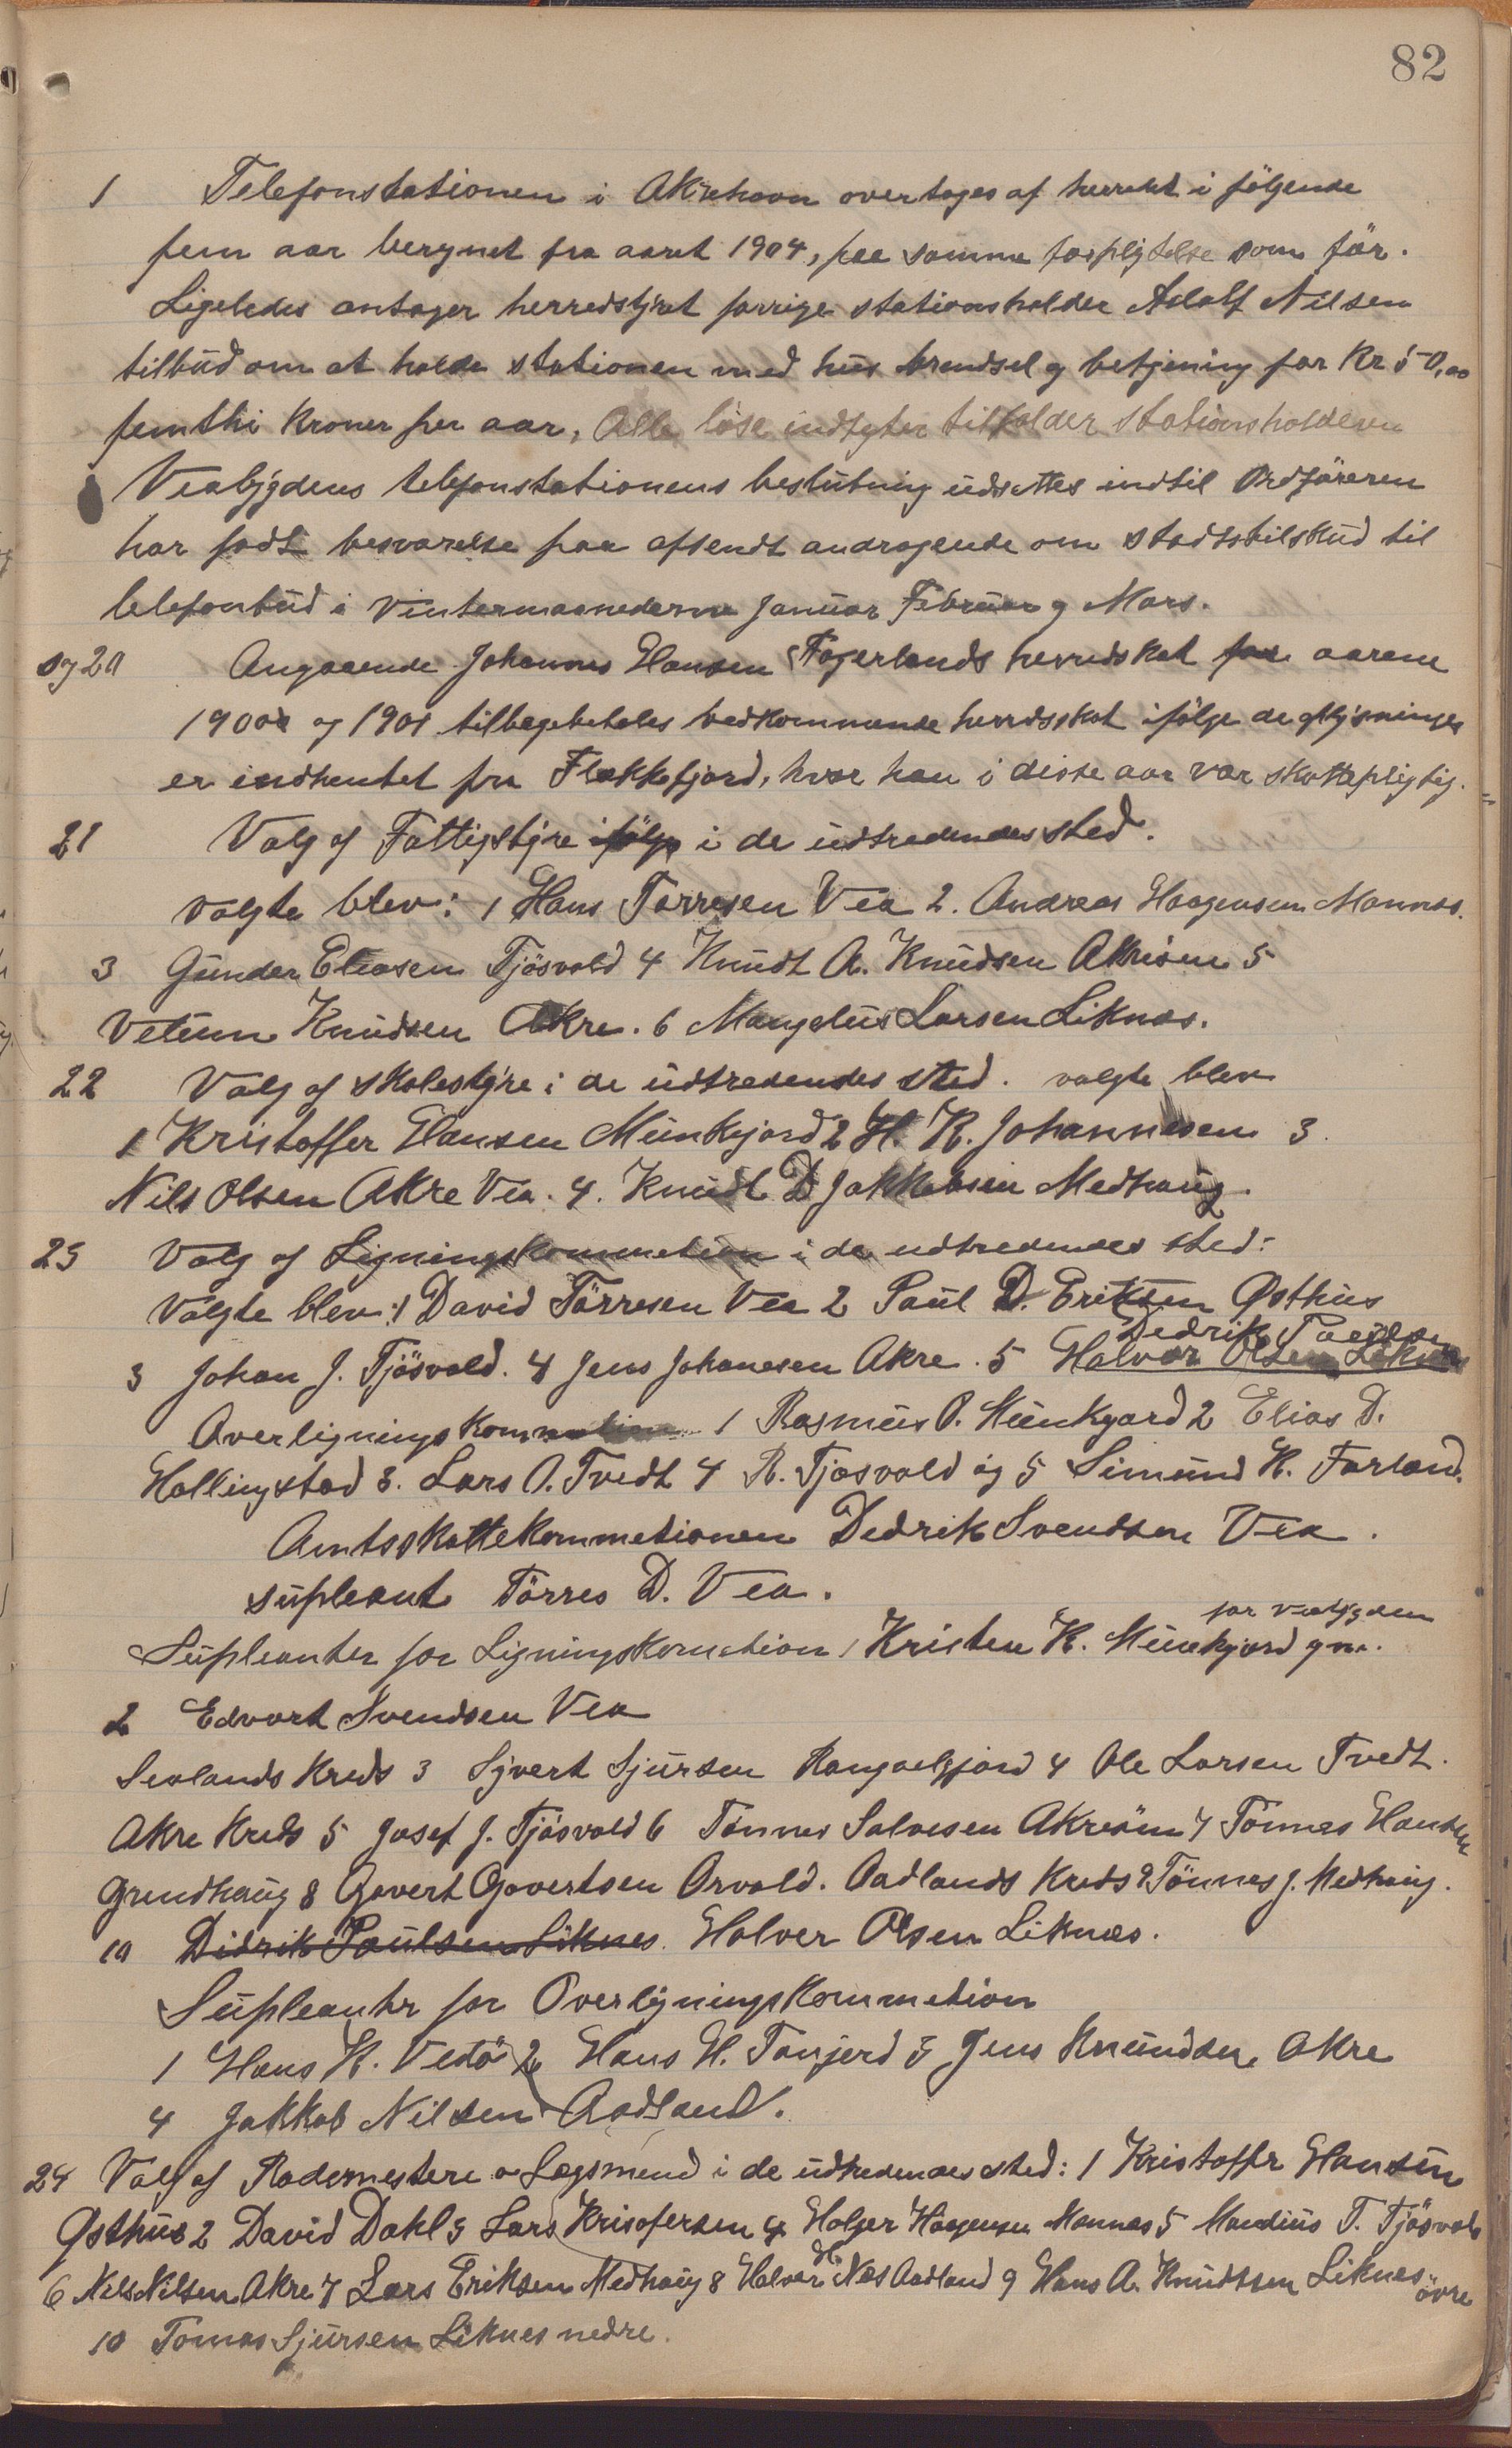 82
1 Telefonstationen i Akrehavn overtages af herredet i følgende
fem aar beregnet fra aaret 1904, paa samme forpligtelse som før.
Ligeledes antager herredstyret forrige stationsholder Adolf Nilsen
tilbud om at holde stationen med hus brendsel og betjening for Kr 50,00
femthi Kroner per aar, Alle løse indtgter tilfalder stationsholderen
Veabygdens telefonstationens beslutning udsettes indtil Ordføreren
har fadt besvarelse paa afsendt andragende om stadstilskud til
telefonbud i Vintermaanederne Januar Februar og Mars.
20 Angaaende Johannes Hansen Fagerlands herredskat for aarene
1900 og 1901 tilbagebetales vedkommende herredsskat ifølge de oplysninger
er indhentet fra Flekkefjord, hvor han i disse aar var skattepligtig.
21 Valg af Fattigstyre ifølge i de udtredendes sted.
valgte blev: 1 Hans Torresen Vea 2. Andreas Haagensen Mannes.
3 Gunder Eliasen Tjøsvold 4 Knudt A. Knudsen Akreøen 5
Knudsen Akre. 6 Mangelus Larsen Liknes.
22 Valg af skolestyre i de udtredendes sted. valgte blev
1 Kristoffer Hansen Munkejord 2 H. K. Johannesen 3.
Nils Olsen Akre Vea. 4. Knudt D Jakkobsen Medhaug.
23 Valg af Ligningskommetion i de udtredendes sted:
Valgte blev: 1 David Tørresen Vea 2 Paul D. Eriksen Østhus
Dedrik Paulsen
3 Johan J. Tjøsvold. 4 Jens Johanesen Akre. 5 Halvor Olsen Liknes
Overlignings kommetion 1 Rasmus O. Munkgard 2 Elias D.
Hallingstad 3. Lars O. Tvedt 4 R. Tjøsvold og 5 Simund K. Farland.
Amtsskattekommetionen Dedrik Svendsen Vea.
supleant Tørres D. Vea.
for veabygden
Supleanter for Ligningskometion 1 Kristen K. Munkejord
2 Edvart Svendsen Vea
Sevlands Kreds 3 Sjvert Sjursen 4 Ole Larsen Tvedt.
Akre Kreds 5 Josef J. Tjøsvold 6 Tønnes Salvesen Akreøen 7 Tønnes Hansen
Grindhaug 8 Govert Govertsen Orvold. Aadlands Kreds 9 Tønnes J. Medhaug.
10 Didrik Paulsen Liknes. Halver Olsen Liknes.
Supleanter for Overligningskommetion
1 Hans K. Vedø 2 Hans H. Tanjerd 3 Jens Knundsen Akre
4 Jakkob Nilsen Aadland.
24 Valg af Rodemestere o Lægsmend i de udtredendes sted: 1 Kristoffer Hansen
Østhus 2 David Dahl 3 Lars Kristofersen 4 Holger Haagensen Mannes 5 Mandius T. Tjøsvold
6 Nels Nilsen Akre 7 Lars Eriksen Medhaug 8 Halvar H. Nes Aadland 9 Hans A. Knudtsen Liknes øvre
10 Tomas Sjursen Liknes nedre.